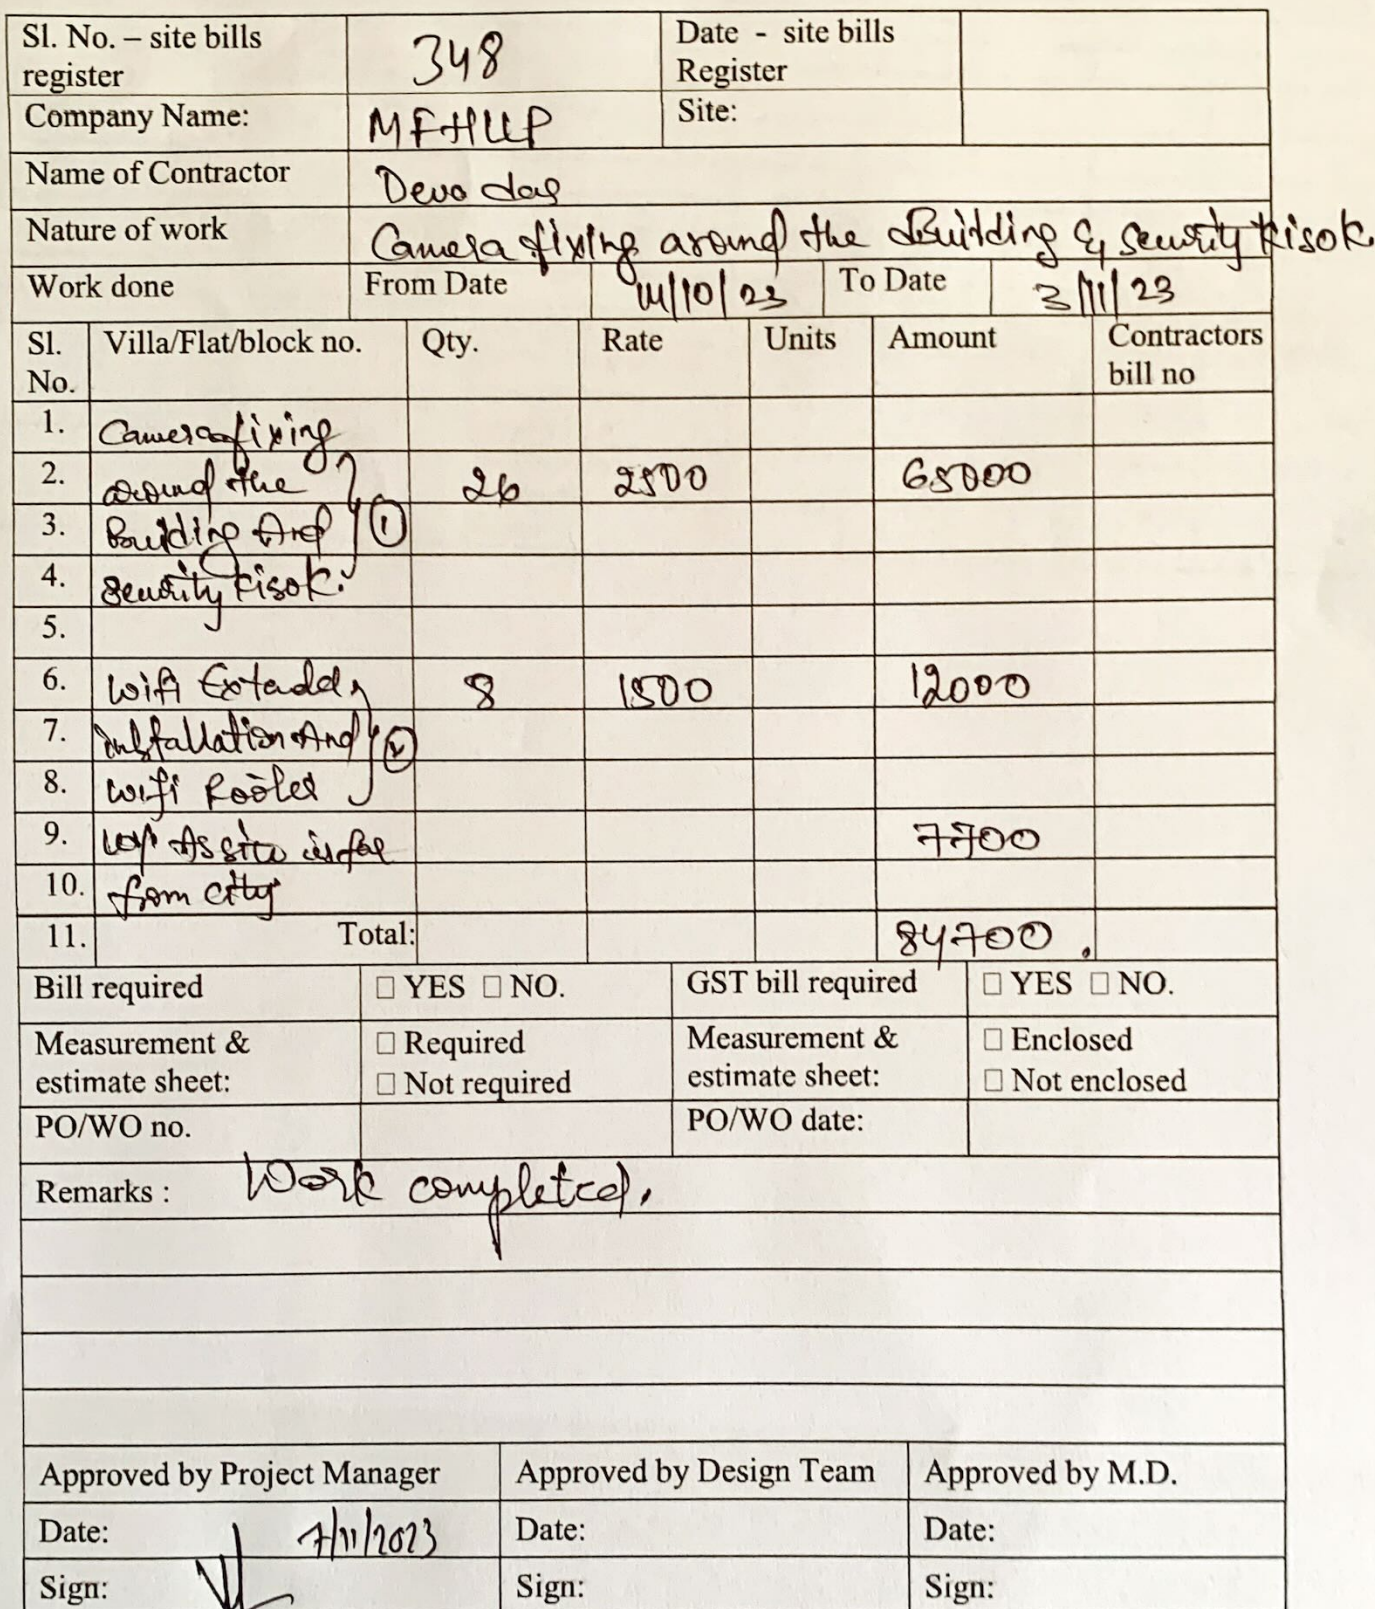 Sl. No. – site bills register 348 Date - site bills Register
Company Name: MFHLLP Site:
Name of Contractor Deva das
Nature of work Camera fixing around the Building & security kisok
Work done From Date 14/10/23 To Date 3/11/23
Sl. No. Villa/Flat/block no. Qty. Rate Units Amount Contractors bill no
1. Camera fixing
2. around the 26 2500 65000
3. Building And 1
4. Security kisok.
5.
6. wifi Extended 8 1500 12000
7. installation And 2
8. wifi Rooter
9. As site is far 7700
10. from city
11. Total: 84700.
Bill required □ YES □ NO. GST bill required □ YES □ NO.
Measurement & estimate sheet: □ Required □ Not required Measurement & estimate sheet: □ Enclosed □ Not enclosed
PO/WO no. PO/WO date:
Remarks : Work completed.
Approved by Project Manager Approved by Design Team Approved by M.D.
Date: 7/11/2023 Date: Date:
Sign: Sign: Sign: